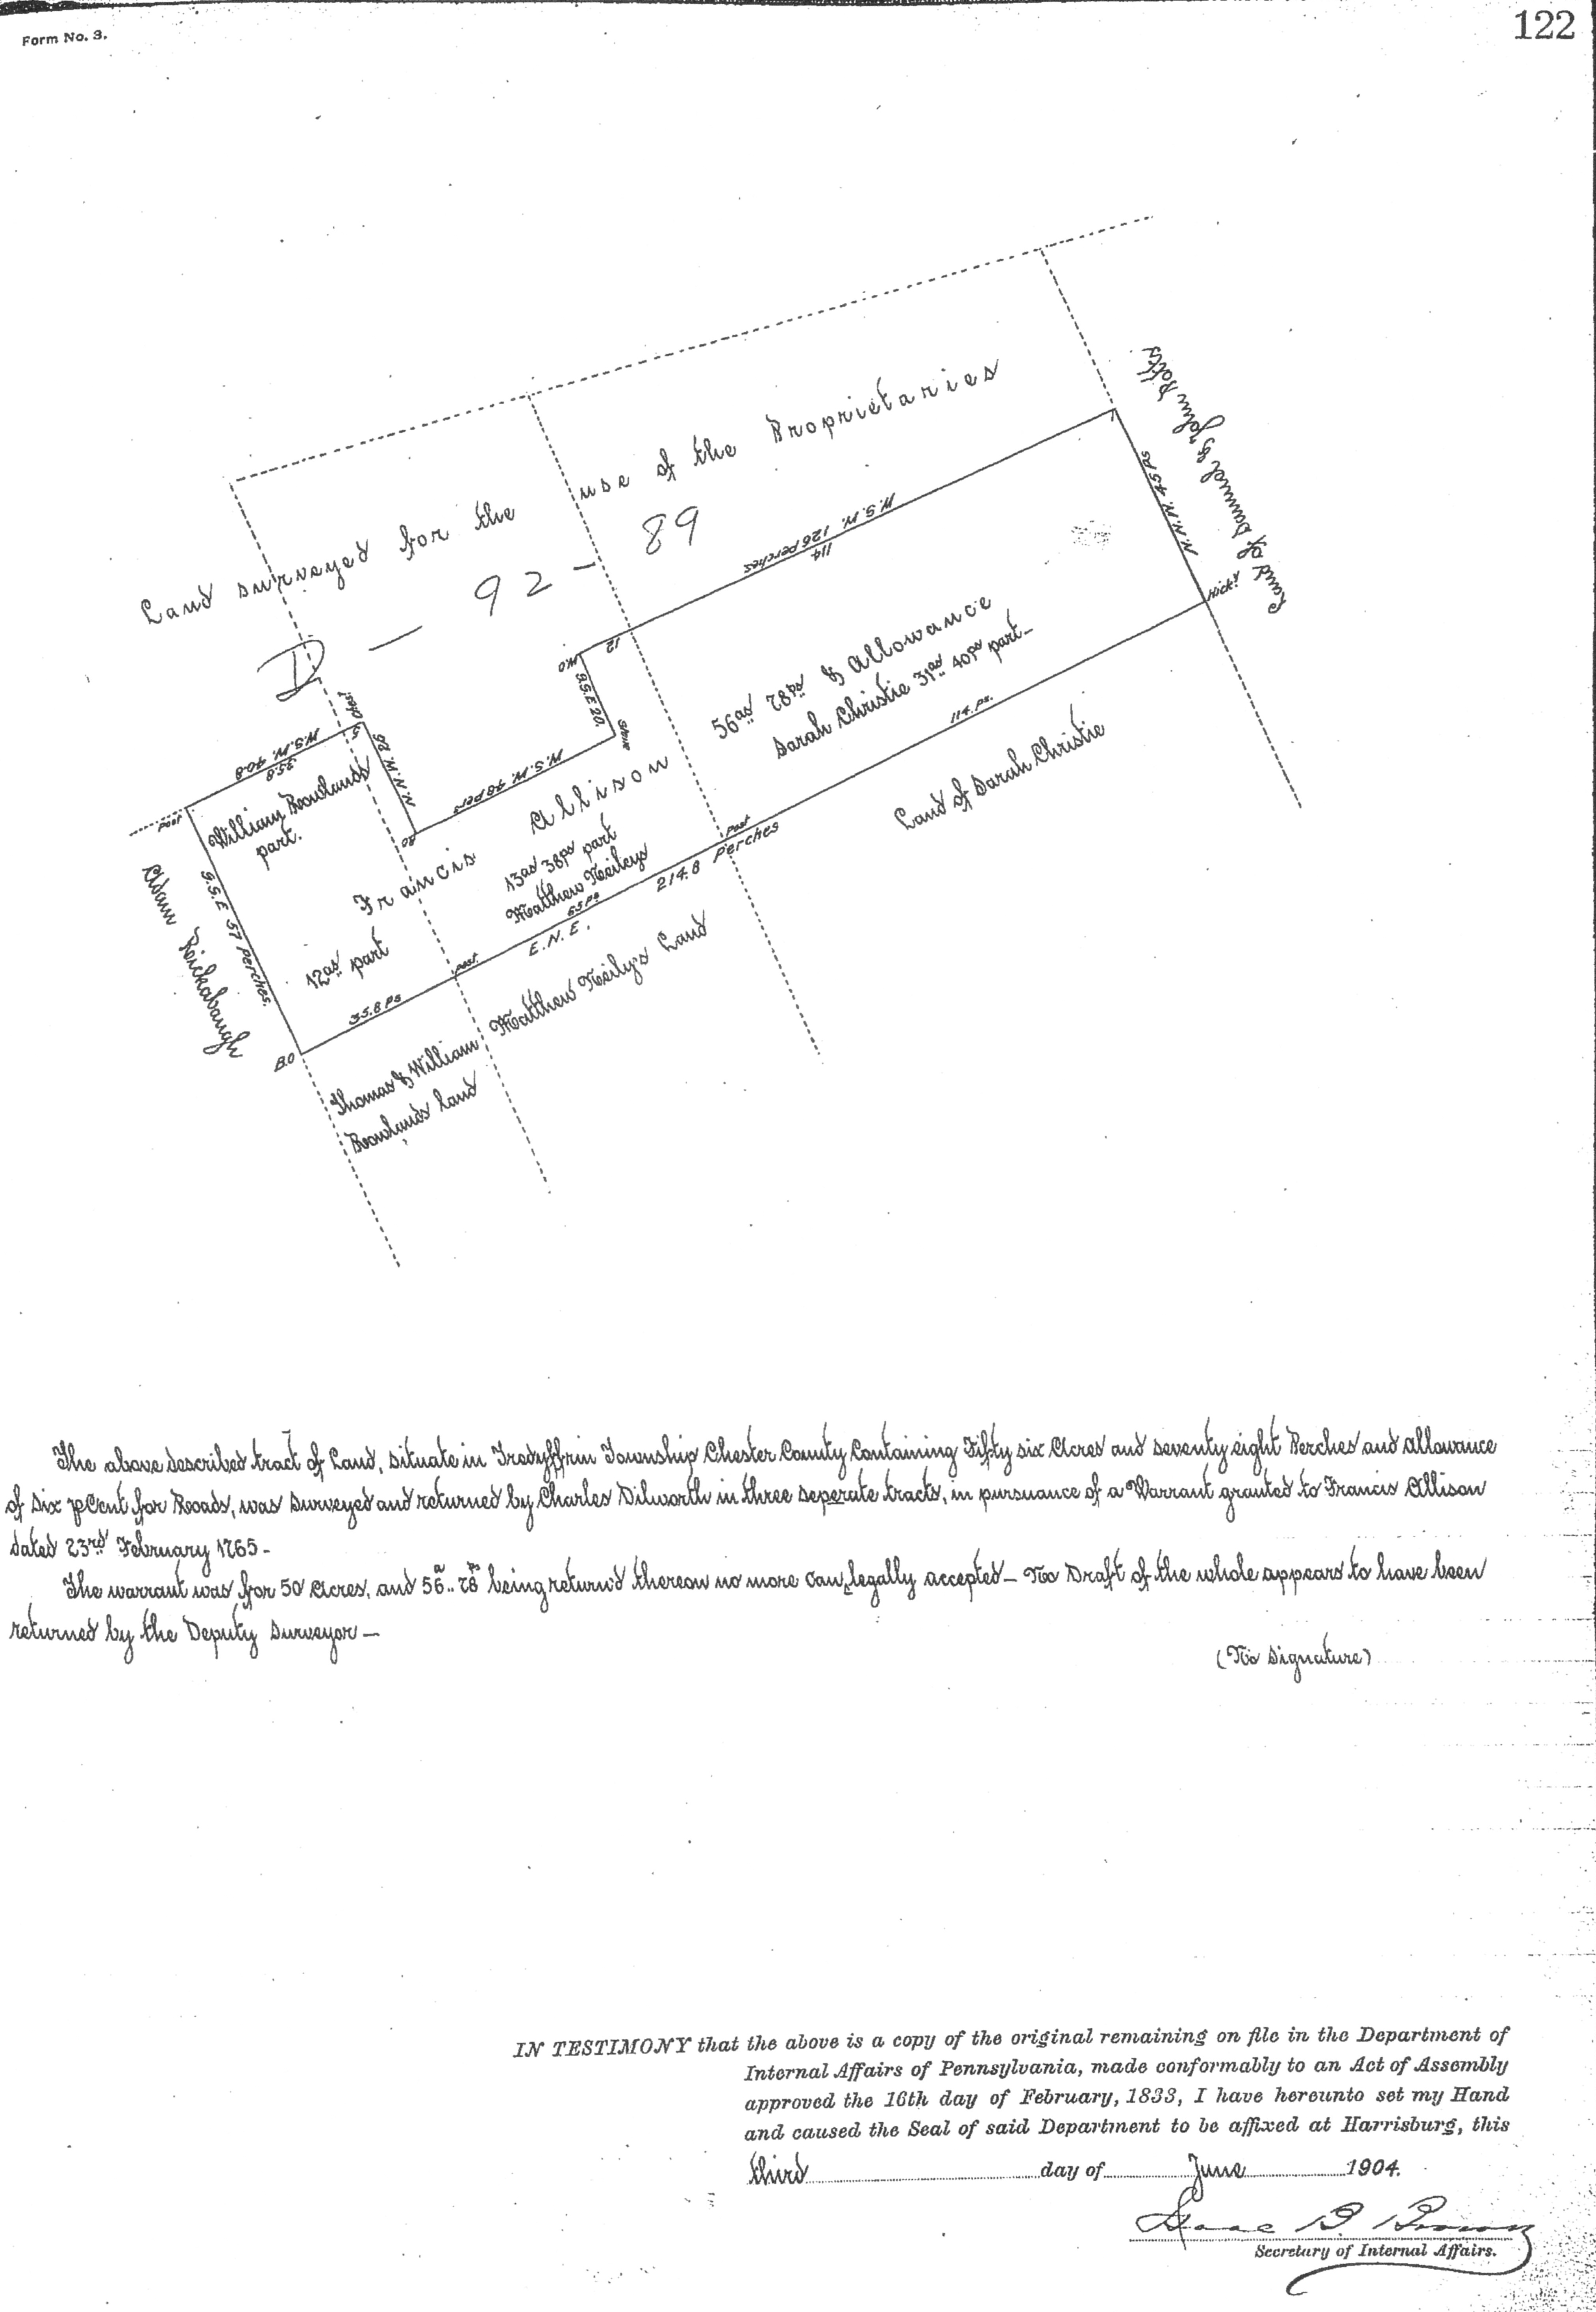 Form No. 3.
122
Land surveyed for the use of the Proprietaries
D — 92 — 89
Land of Daniel & John
N.N.W. 45 Ps
W.S.W. 126 perches
114
12
W.O
S.S.E 20.
Stone
Hick.y
56as 78ps & allowance
Sarah Christie 31as 40ps part
114. ps.
Land of Sarah Christie
Chest
W.S.W. 40.8
35.8
5
N.N.W. 26
W.S.W. 48 pers
post
William Rowlands
part.
S.S.E 57 Perches.
Adam Rickabaugh
Francis Allison
13as 38ps part
Matthew Neilys
65 ps
12as part
35.8 Ps
post
E.N.E. 214.8 Perches
post
B.O
Matthew Neilys Land
Thomas & William
Rowlands Land
The above described tract of Land, situate in Tredyffrin Township Chester County Containing Fifty six Acres and seventy eight Perches and allowance
of six p Cent for Roads, was surveyed and returned by Charles Dilworth in three seperate tracts, in pursuance of a Warrant granted to Francis Allison
dated 23rd February 1765 -
The warrant was for 50 Acres, and 56a.. 78ps being return'd thereon no more can legally accepted — No Draft of the whole appears to have been
returned by the Deputy Surveyor —
(No Signature)
IN TESTIMONY that the above is a copy of the original remaining on file in the Department of
Internal Affairs of Pennsylvania, made conformably to an Act of Assembly
approved the 16th day of February, 1833, I have hereunto set my Hand
and caused the Seal of said Department to be affixed at Harrisburg, this
third day of June 1904.
Isaac B. Brown
Secretary of Internal Affairs.